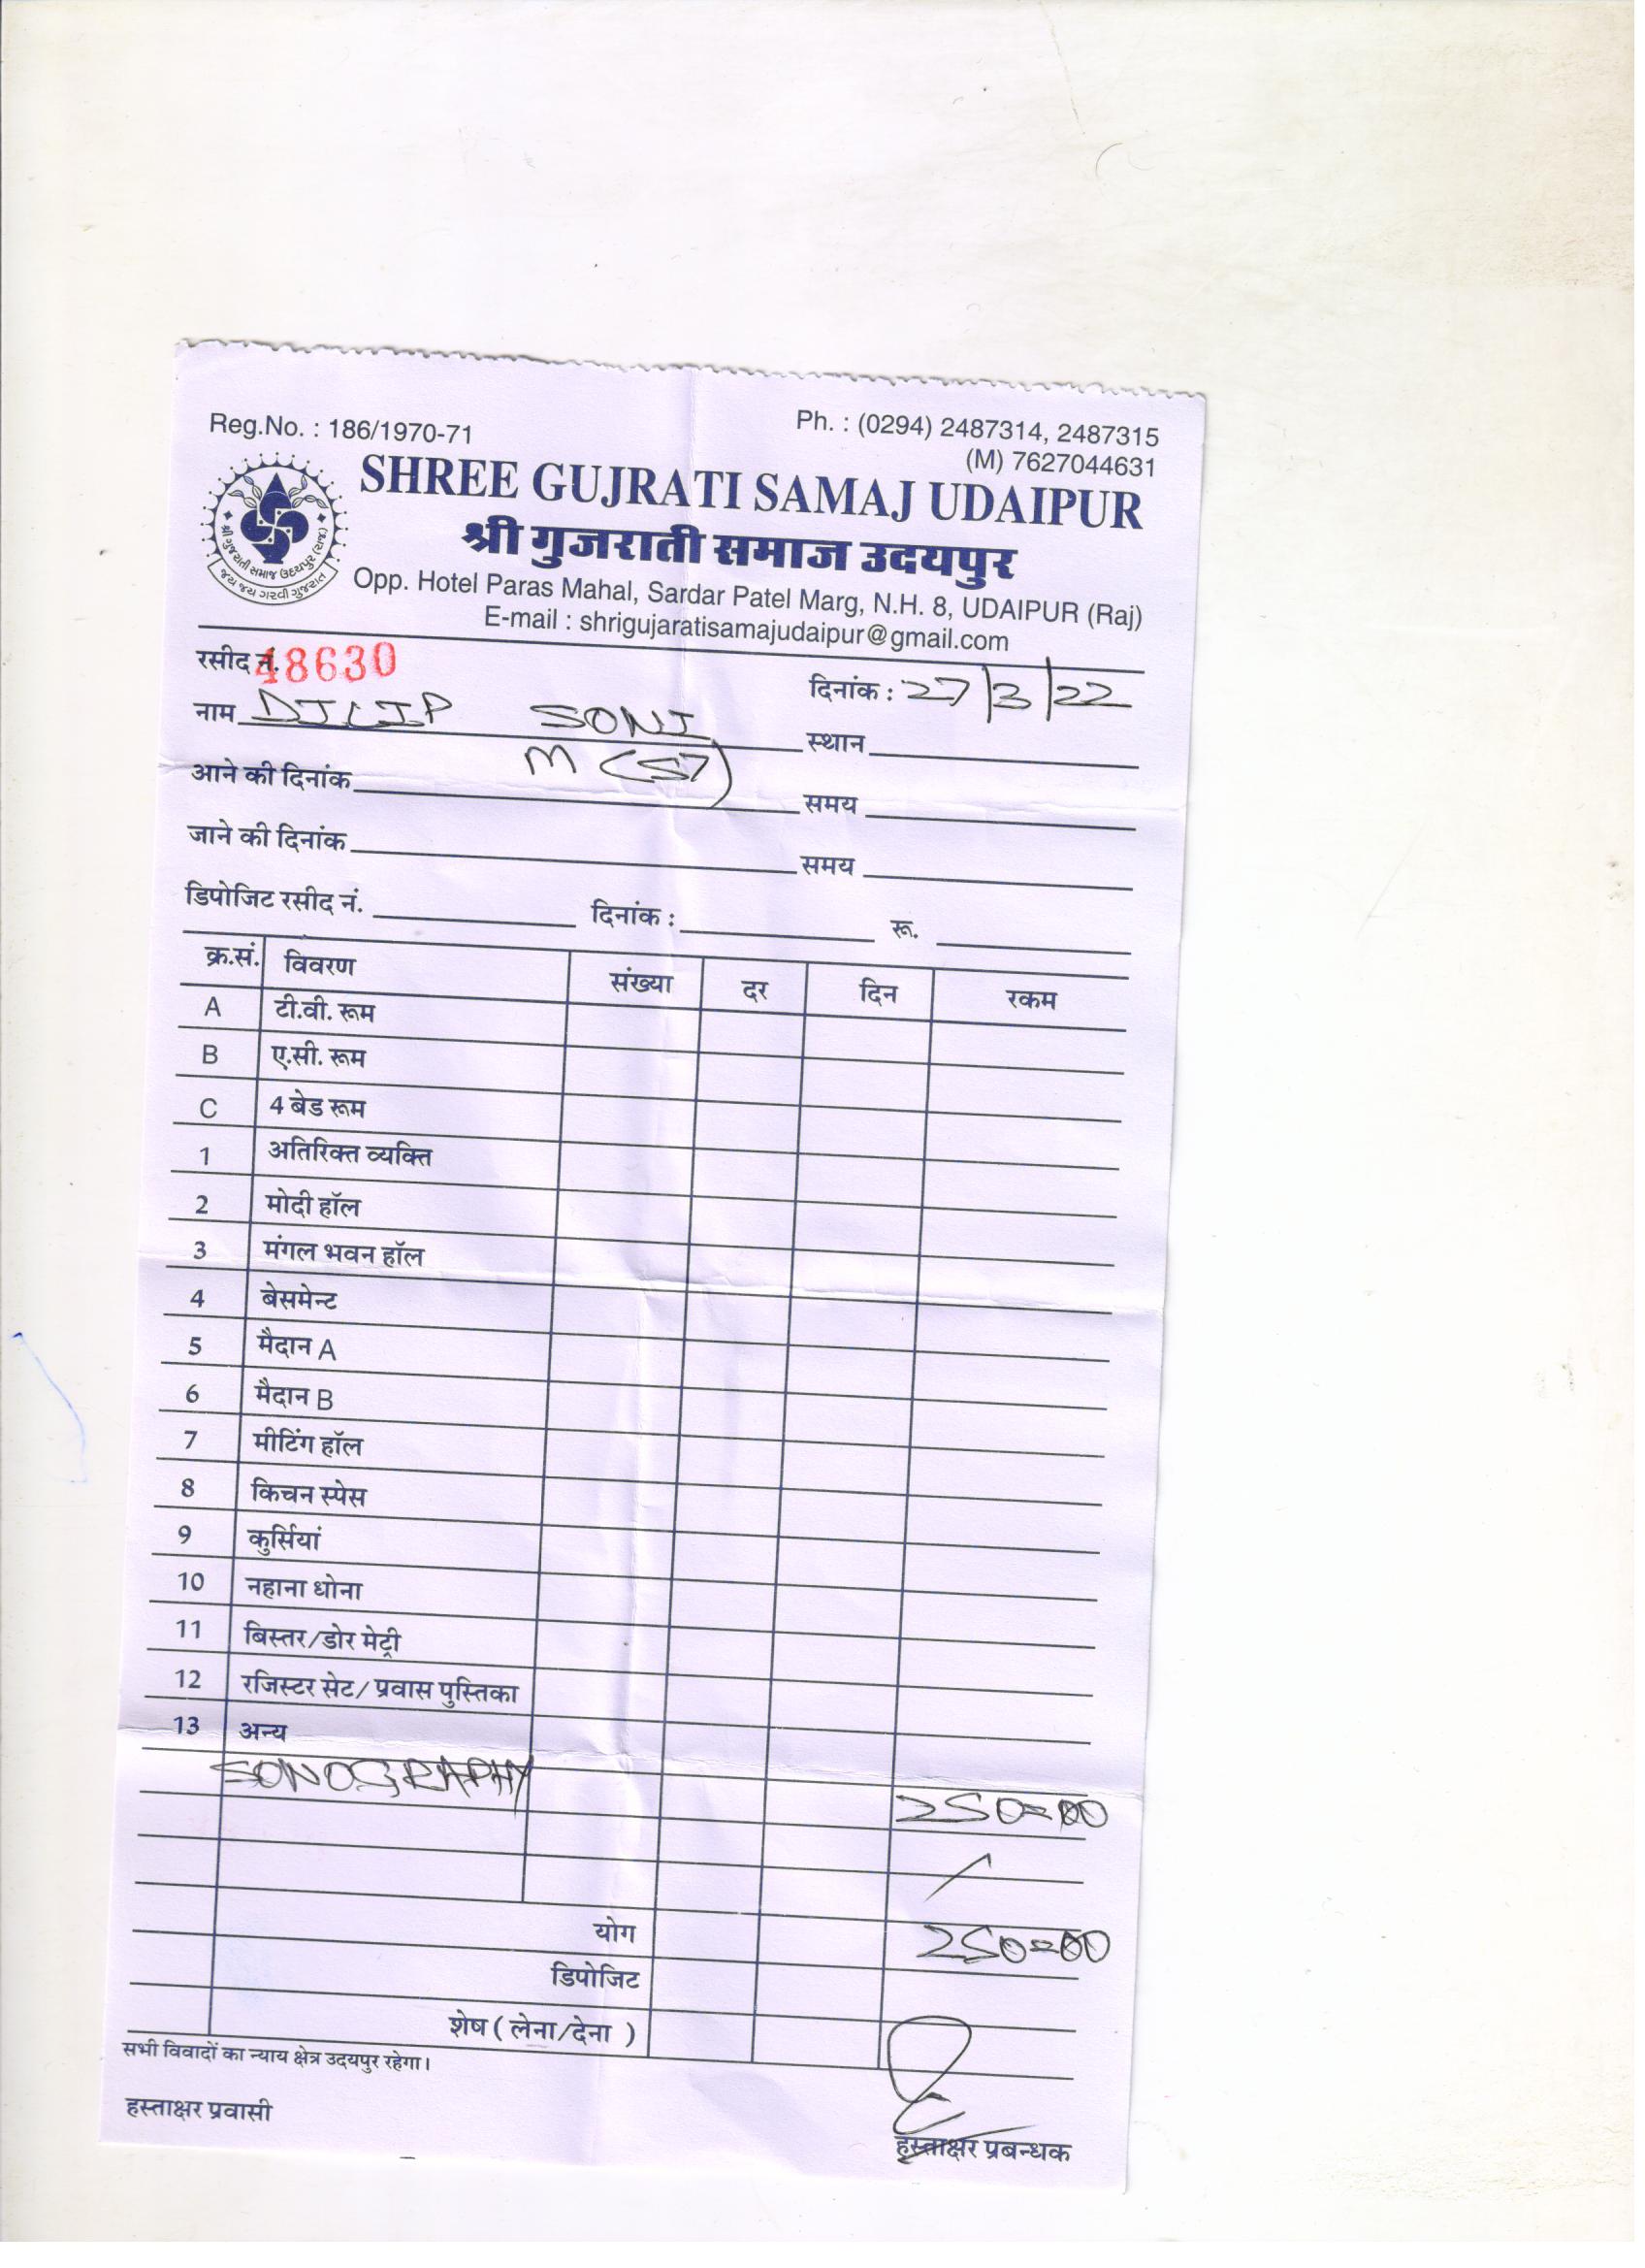 Reg.No. : 186/1970-71
Ph. : (0294) 2487314, 2487315
(M) 7627044631
SHREE GUJRATI SAMAJ UDAIPUR
श्री गुजराती समाज उदयपुर
શ્રી ગુજરાતી સમાજ ઉદયપુર (રાજ)
જય જય ગરવી ગુજરાત
Opp. Hotel Paras Mahal, Sardar Patel Marg, N.H. 8, UDAIPUR (Raj)
E-mail : shrigujaratisamajudaipur@gmail.com
रसीद नं. 48630 दिनांक : 27/3/22
नाम DILIP SONI स्थान
M (57)
आने की दिनांक समय
जाने की दिनांक समय
डिपोजिट रसीद नं. दिनांक : रू.
क्र.सं. विवरण संख्या दर दिन रकम
A टी.वी. रूम
B ए.सी. रूम
C 4 बेड रूम
1 अतिरिक्त व्यक्ति
2 मोदी हॉल
3 मंगल भवन हॉल
4 बेसमेन्ट
5 मैदान A
6 मैदान B
7 मीटिंग हॉल
8 किचन स्पेस
9 कुर्सियां
10 नहाना धोना
11 बिस्तर/डोर मेट्री
12 रजिस्टर सेट/ प्रवास पुस्तिका
13 अन्य
SONOGRAPHY 250=00
योग 250=00
डिपोजिट
शेष ( लेना/देना )
सभी विवादों का न्याय क्षेत्र उदयपुर रहेगा।
हस्ताक्षर प्रवासी
हस्ताक्षर प्रबन्धक